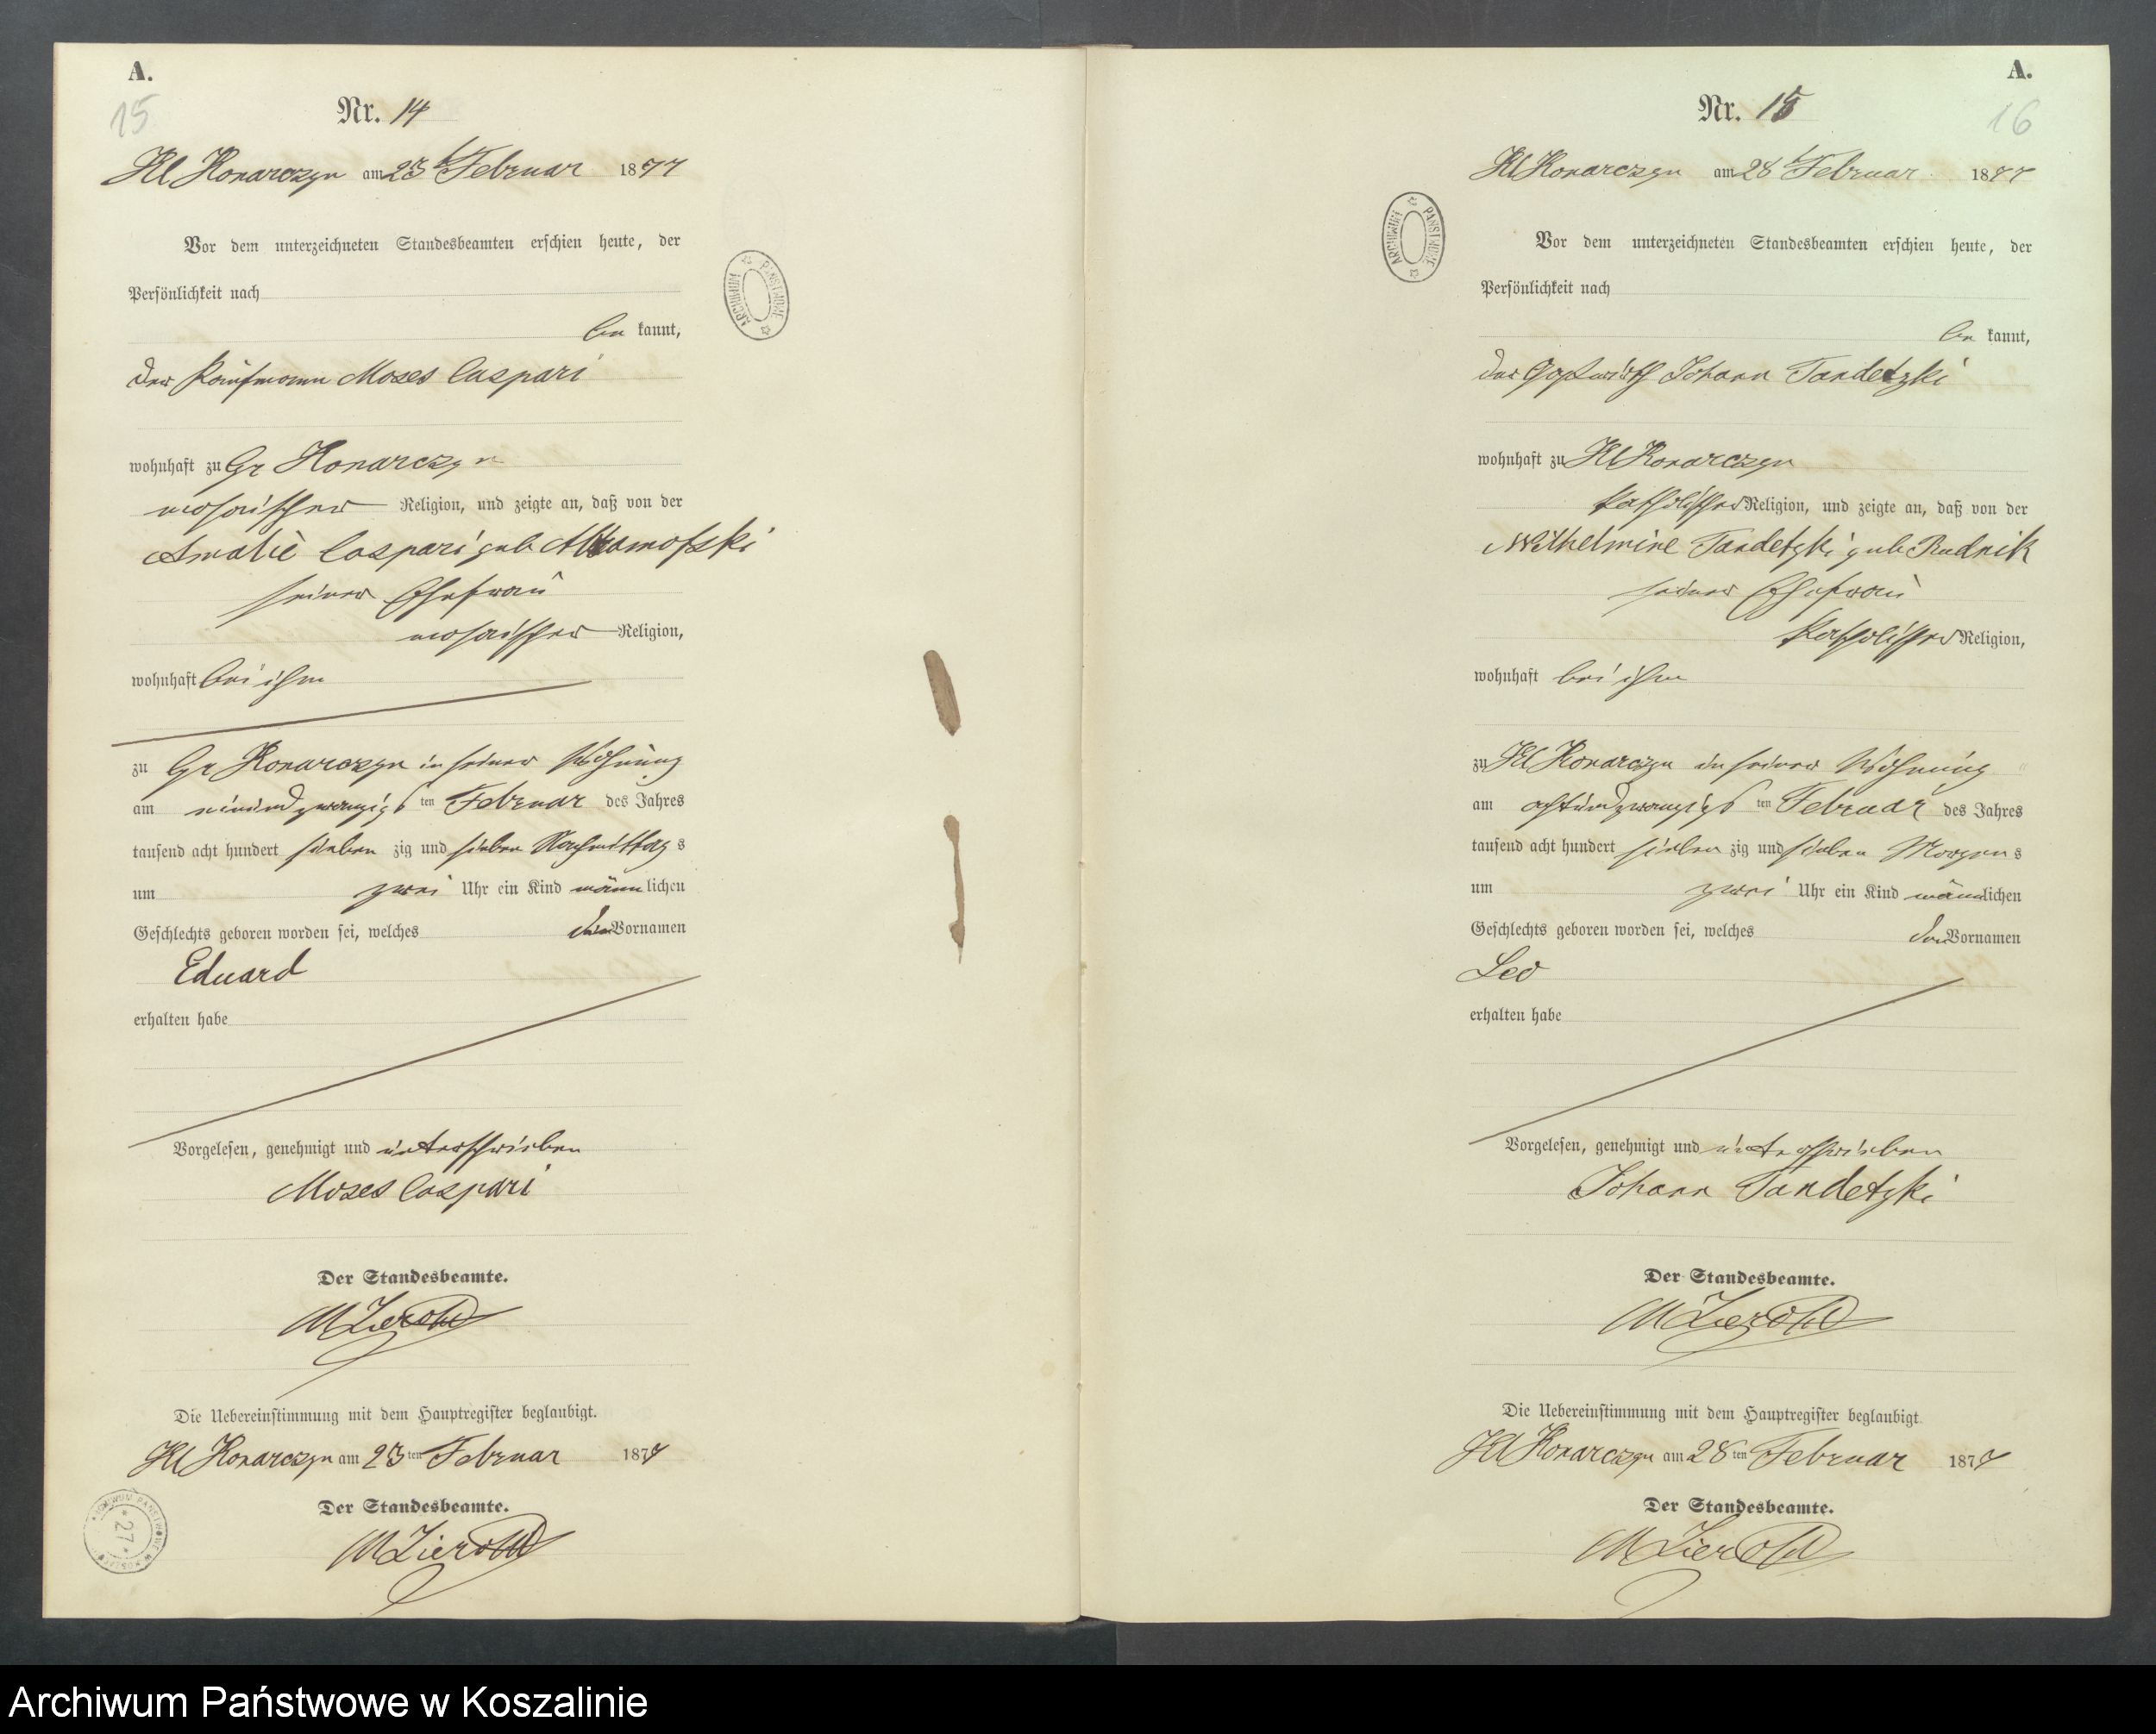 A.
15
Nr. 14
Kl Konarczyn am 23t Februar 1877
Vor dem unterzeichneten Standesbeamten erschien heute, der
Persönlichkeit nach
be kannt,
der Kaufmann Moses Caspari
wohnhaft zu Gr Konarczyn
mosaischer Religion, und zeigte an, daß von der
Amalie Caspari geb
seiner Ehefrau
mosaischer Religion,
wohnhaft bei ihm
zu Gr Konarczyn in seiner Wohnung
am einundzwanzigs ten Februar des Jahres
tausend acht hundert sieben zig und sieben Nachmittag s
um zwei Uhr ein Kind männ lichen
Geschlechts geboren worden sei, welches den Vornamen
Eduard
erhalten habe
Vorgelesen, genehmigt und unterschrieben
Moses Caspari
Der Standesbeamte.
M Zierold
Die Uebereinstimmung mit dem Hauptregister beglaubigt.
Kl Konarczyn am 23 ten Februar 1877
Der Standesbeamte.
M Zierold
ARCHIWUM PAŃSTWOWE
27
A.
16
Nr. 15
Kl Konarczyn am 28t Februar 1877
Vor dem unterzeichneten Standesbeamten erschien heute, der
Persönlichkeit nach
be kannt,
der Gastwirth Johann Tandetzki
wohnhaft zu Kl Konarczyn
katholischer Religion, und zeigte an, daß von der
Wilhelmine Tandetzki geb Rudnik
seiner Ehefrau
katholischer Religion,
wohnhaft bei ihm
zu Kl Konarczyn in seiner Wohnung
am achtundzwanzigs ten Februar des Jahres
tausend acht hundert sieben zig und sieben Morgen s
um zwei Uhr ein Kind männ lichen
Geschlechts geboren worden sei, welches den Vornamen
Leo
erhalten habe
Vorgelesen, genehmigt und unterschrieben
Johann Tandetzki
Der Standesbeamte.
M Zierold
Die Uebereinstimmung mit dem Hauptregister beglaubigt.
Kl Konarczyn am 28 ten Februar 1877
Der Standesbeamte.
M Zierold
ARCHIWUM PAŃSTWOWE
Archiwum Państwowe w Koszalinie